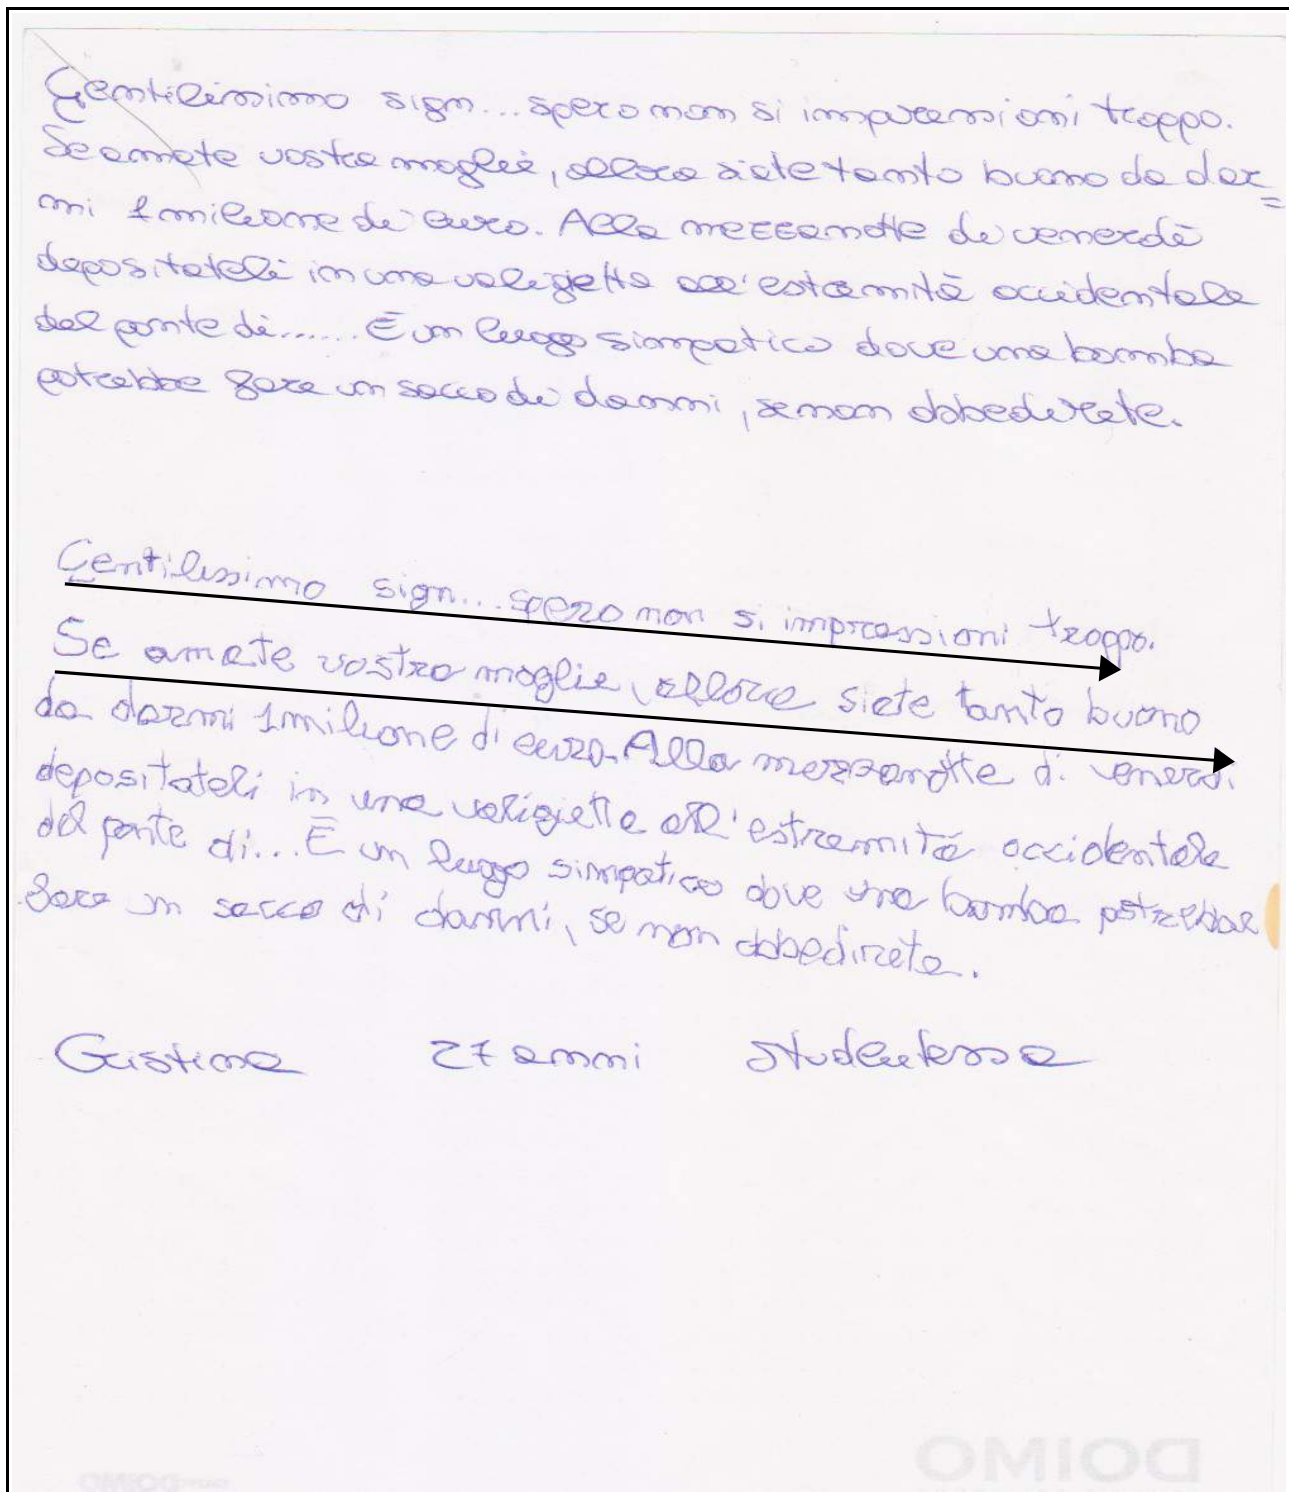 Gentilissimo sign... spero non si impressioni troppo.
Se amate vostra moglie, allora siete tanto buono da dar=
mi 1 milione di euro. Alla mezzanotte di venerdì
depositateli in una valigietta all'estremità occidentale
del ponte di...... È un luogo simpatico dove una bomba
potrebbe fare un sacco di danni, se non obbedirete.
Gentilissimo sign... spero non si impressioni troppo.
Se amate vostra moglie, allora siete tanto buono
da darmi 1 milione di euro. Alla mezzanotte di venerdi
depositateli in una valigietta all'estremità occidentale
del ponte di... È un luogo simpatico dove una bomba potrebbe
fare un sacco di danni, se non obbedirete.
Cristina 27 anni studentessa
DOIMO
DOIMO